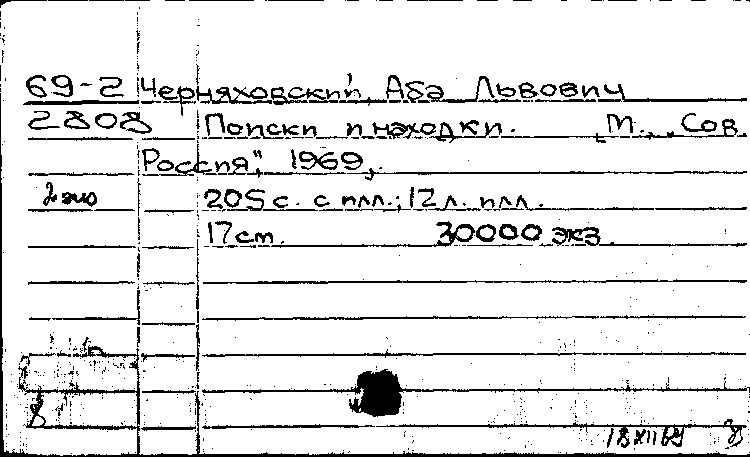 69-2 Черняховский, Аба Львович
2808 Поиски и находки. [М., „Сов.
Россия", 1969].
2 экз
205 с. с илл.; 12 л. илл.
17 см. 30000 экз.
18 XII 69